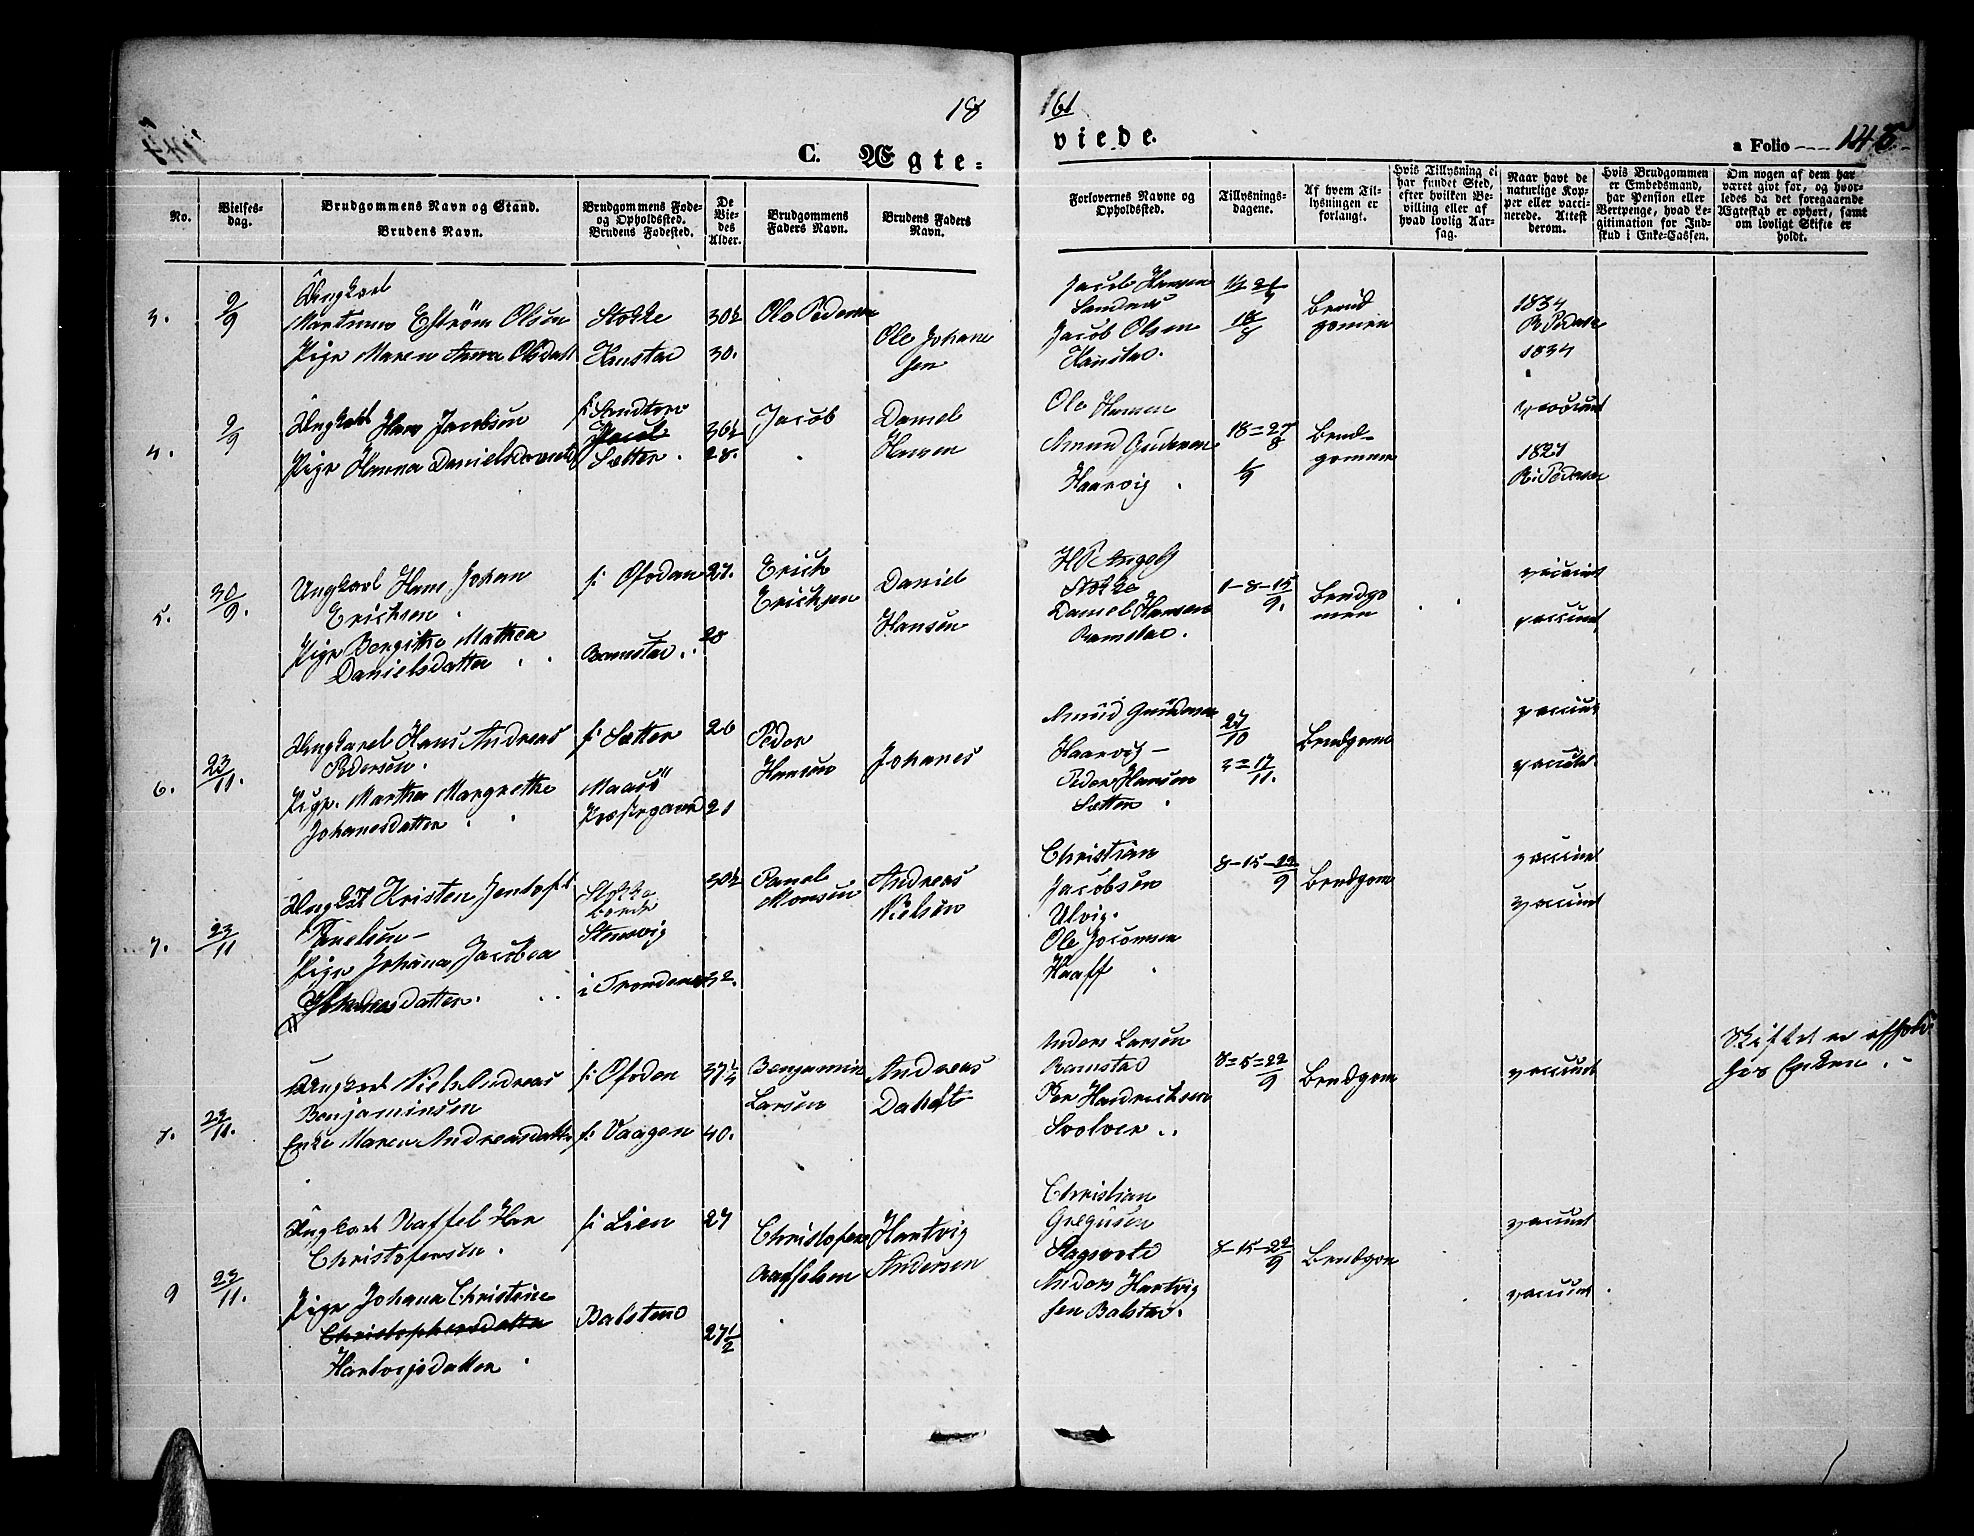 18
61
C. Ægte-
viede.
a Folio 145
No.
Vielses-
dag.
Brudgommens Navn og Stand.
Brudens Navn.
Brudgommens Føde-
og Opholdssted.
Brudens Fødested.
De
Vie-
des
Alder.
Brudgommens
Faders Navn.
Brudens Faders
Navn.
Forlovernes Navne og
Opholdssted.
Tillysnings-
dagene.
Af hvem Til-
lysningen er
forlangt.
Hvis Tillysning ei
har fundet Sted,
efter hvilken Be-
villing eller af
hvad lovlig Aar-
sag.
Naar havt de
naturlige Kop-
per eller vacci-
nerede. Attest
derom.
Hvis Brudgommen
er Embedsmand,
har Pension eller
Vertpenge, hvad Le-
gitimation for Ind-
skud i Enke-Cassen.
Om nogen af dem har
været gift før, og hvor-
ledes da det foregaaende
Ægteskab er ophørt, samt
om lovligt Skifte er
holdt.
3.
9/9
Ungkarl
Martinus Estrøm Olsen
Pige Maren Anna Olsdatt
Stokke
Hanstad
30½
30.
Ole Pedersen
Ole Johane
sen
Jacob Hansen
Sandnes
Jacob Olsen
Hanstad.
18/8
Brud
gomen
1834
1834
4.
9/9
Ungkarl Hans Jacobsen
Pige Hanna Danielsdaand
f: Sandtorv
Sætter.
30½
28.
Jacob
Daniel
Hansen
Ole Hansen
Amund Gudesen
Haarvig
18=27/8
1/9
Brud-
gommen
vaccint
1827
R: Pedersen
5.
30/9.
Ungkarl Hans Johan
Ericksen.
Pige Bergithe Mathea
Danielsdatter
f: Ofoden
Ramstad.
27.
28
Erich
Erichsen
Daniel
Hansen
Stokke
Daniel Hansen
Ramstad.
1-8-15/9.
Brudgo
men
vaccint
vaccint
6.
23/11.
Ungkarl Hans Andreas
Pedersen.
Pige. Martha Margrethe
Johanesdatter
f: Sætter
Maars
Præstegaard
26
21
Peder
Hansen
Johanes
Amund Gudesen
Haarvig-
Peder Hansen
Sætter
27/10
3=17/11.
Brudgom
vaccint
vaccint
7.
23/11
Ungkarl Kristen Jentoft
Panelsen-
Pige Johanna Jacobea
Andreasdatter.
Stokke
Stensvig
i Trondenes
30½
32.
Paul
Monsen
Andreas
Nielsen
Christian
Jacobsen
Ulvig.
Ole Jocomsen
Kaaff
8-15-22/9
Brudgom
vaccint
vaccint
7.
23/11.
Ungkarl Niels Andreas
Benjaminsen
Enke Maren Andreasdatter
f: Ofoden
f: Vaagen
37¼
40.
Benjamin
Larsen
Andreas
Dahl
Anders Larsen
Ramstad
Per Hendrichsen
Svolver..
8=15=22/9
Brudgom
vaccint
Skiftet er afholdt
hos Enken.
9
23/11.
Ungkarl Raffel Har
Christofersen.
Pige Johana Christine
Christophersdatter
Hartvigsdatter
f: Lien
Balstad
27
27½
Christofer
Raffelsen
Hartvig
Andersen
Christian
Gregusen
Anders Hartvig
sen Balstad.
8-15-22/9
Brudgom
vaccint
vaccint